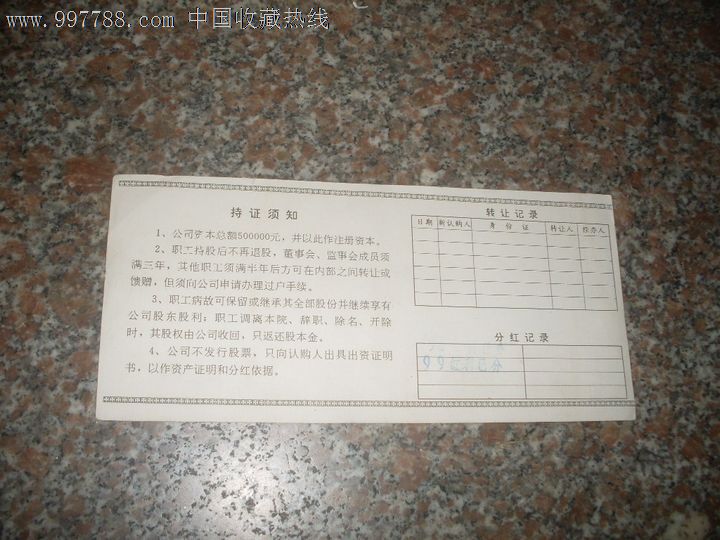 www.997788.com 中国收藏热线
持证须知
1、公司资本总额500000元，并以此作注册资本。
2、职工持股后不再退股，董事会、监事会成员须
满三年，其他职工须满半年后方可在内部之间转让或
馈赠，但须向公司申请办理过户手续。
3、职工病故可保留或继承其全部股份并继续享有
公司股东股利；职工调离本院、辞职、除名、开除
时，其股权由公司收回，只返还股本金。
4、公司不发行股票，只向认购人出具出资证明
书，以作资产证明和分红依据。
转让记录
日期 新认购人 身份证 转让人 经办人
分红记录
99 红利已分